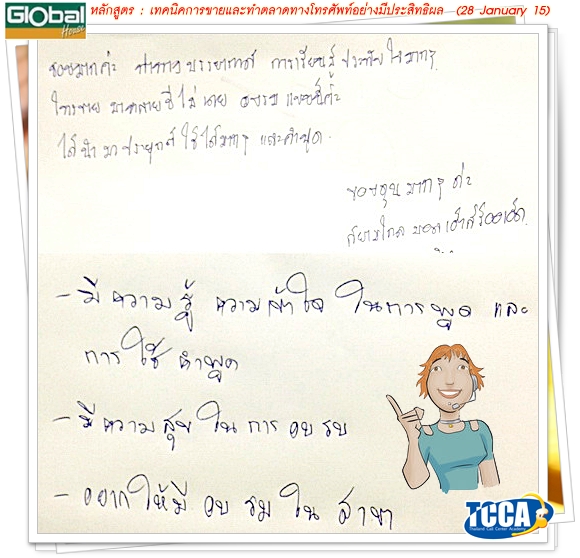 Global House
หลักสูตร : เทคนิคการขายและทำตลาดทางโทรศัพท์อย่างมีประสิทธิผล (28 January 15)
ชอบมากค่ะ บรรยากาศ การเรียนรู้ ประทับใจมากๆ
โทรขาย มาหลายปีไม่เคย อบรม แบบนี้ค่ะ
ได้นำมาประยุกต์ ใช้ได้มากๆ และคำพูด.
ขอบคุณมากๆ ค่ะ
สยามโกลบอลเฮ้าส์ร้อยเอ็ด.
- มีความรู้ ความเข้าใจ ในการพูด และ
การใช้คำพูด
- มีความสุขในการอบรบ
- อยากให้มีอบรมในสาขา
TCCA
Thailand Call Center Academy